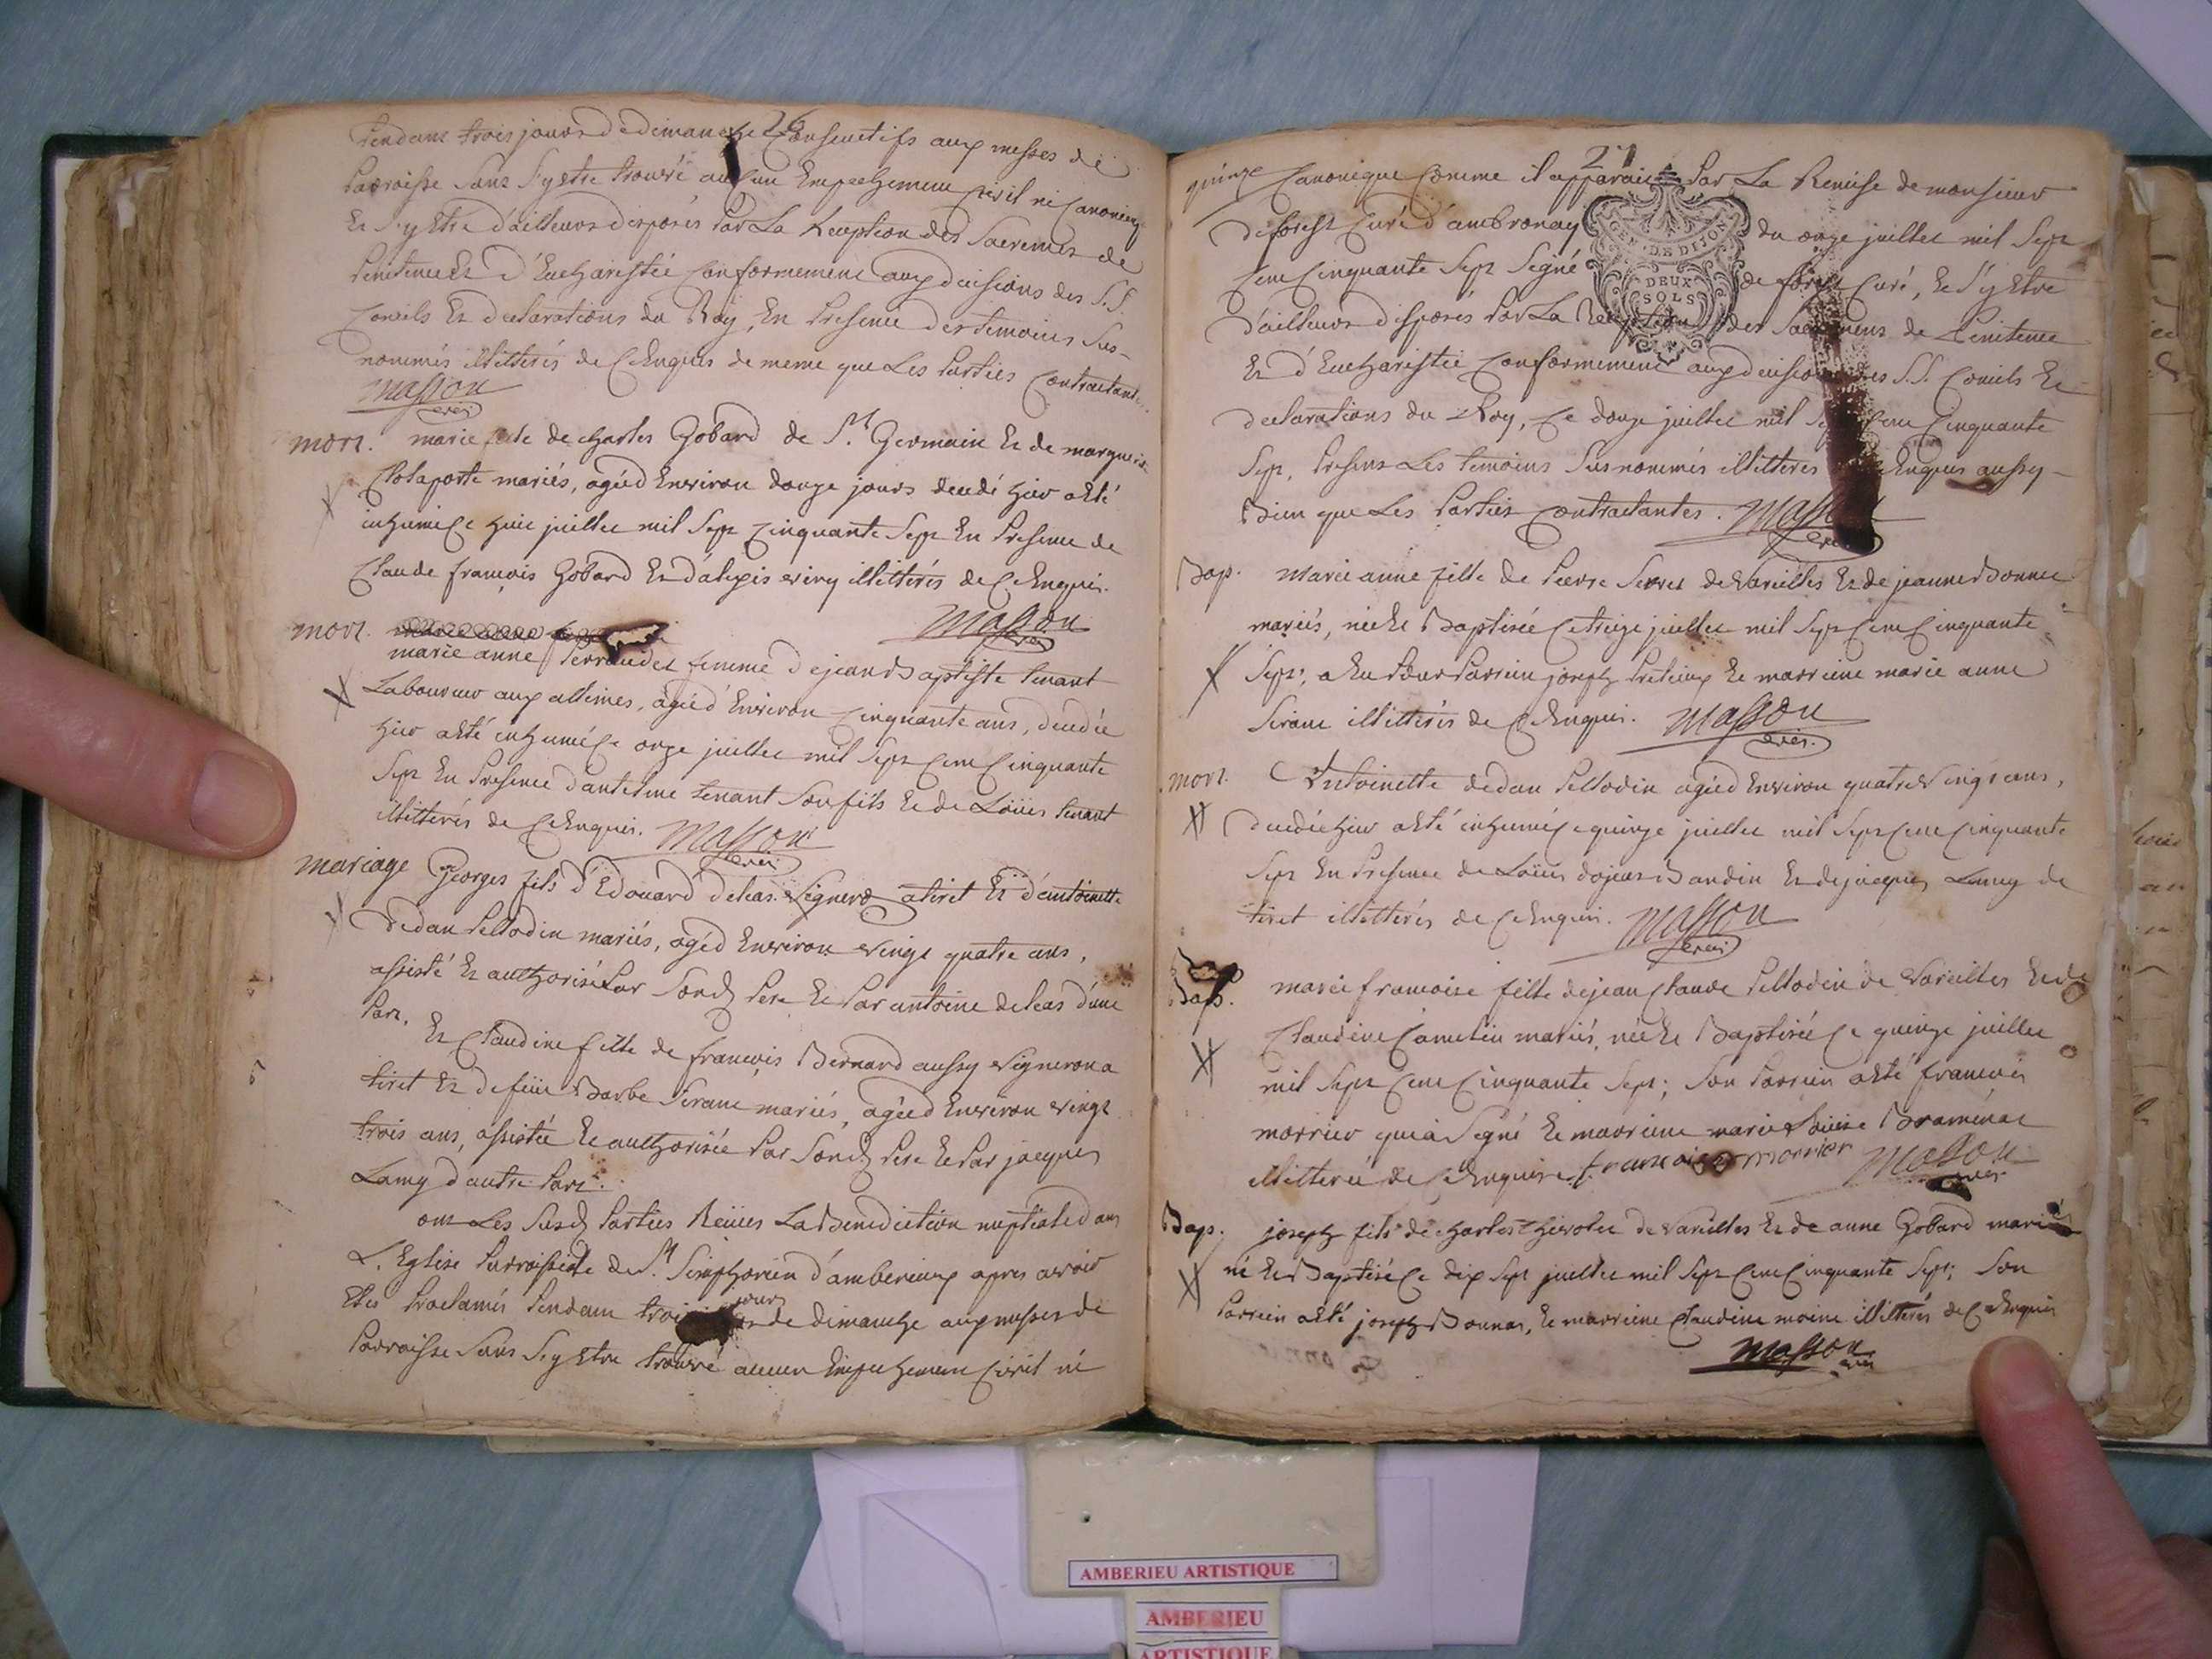 26
pendant trois jours de dimanche Consecutifs aux messes de
Parroisse sans s'y etre trouvé aucun Empechement Civil ni Canonique
Et s'y Etre d'ailleurs disposés Par La Reception des Sacremens de
Penitence Et d'Eucharistie Conformement aux decisions des S.S.
Concils Et declarations du Roy, En Presence des temoins Sus-
nommés illitterés de Ce Enquis de meme que Les Parties Contractantes.
Masson
curé
mort. marie fille de charles Gobard de St Germain Et de marguerite
mariés, agéé d'Environ douze jours decedé hier a Eté
inhumé Ce huit juillet mil Sept Cinquante Sept En Presence de
Claude françois Gobard Et d'alexis illitterés de Ce Enquis.
Masson
curé
mort.
marie anne Perraudet femme de jean Baptiste tenant
Laboureur aux allimes, agéé d'Environ Cinquante ans, decedée
hier a Eté inhumé Ce onze juillet mil Sept Cent Cinquante
Sept En Presence d'antelme tenant Son fils Et de Loüis tenant
illitterés de Ce Enquis. Masson
curé
mariage Georges fils d'Edouard deleas Vigneron a tiret Et d'antoinette
dedan Pellodin mariés, agé d'Environ vingt quatre ans,
assisté Et authorisé Par Sond. Pere Et Par antoine deleas d'une
Part,
Et Claudine fille de françois Bernard aussy Vigneron a
tiret Et de feüe Barbe Sirane mariés, agéé d'Environ vingt
trois ans, assistée Et authorisée Par Sond. Pere Et Par jacques
Lamy d'autre Part.
ont Les Susd. Parties Reçües La Benediction nuptiale dans
L'Eglise Parroissiale de St Simphorien d'amberieux apres avoir
Etés Proclamés Pendant trois jours de dimanche aux messes de
Parroisse Sans S'y Etre trouvé aucun Empechement Civil ni
27
quinze Canonique Comme il apparait Par La Remise de monsieur
deforest Curé d'ambronay du onze juillet mil Sept
Cent Cinquante Sept Signé de forest Curé, Et S'y Etre
d'ailleurs disposés Par La Reception des Sacremens de Penitence
Et d'Eucharistie Conformement aux decisions des S.S. Concils Et
declarations du Roy, Ce douze juillet mil Sept Cent Cinquante
Sept, Presens Les temoins Susnommés illitterés de Ce Enquis aussy
Bien que Les Parties Contractantes. Masson
curé
GEN. DE DIJON
DEUX
SOLS
Bap. Marie anne fille de Pierre Serret de Vareilles Et de jeanne Bonnet
mariés, née Et Baptisée Ce treize juillet mil Sept Cent Cinquante
Sept; a Eu Pour Parrein joseph Et marreine marie anne
Sirane illitterés de Ce Enquis. Masson
curé
mort. Antoinette dedan Pellodin agéé d'Environ quatre Vingts ans,
decedée hier a Eté inhumé Ce quinze juillet mil Sept Cent Cinquante
Sept En Presence de Loüis Baudin Et de jacques Lamy de
tiret illitterés de Ce Enquis. Masson
curé
Bap. marie francoise fille de jean Claude Pellodin de Vareilles Et de
Claudine mariés, née Et Baptisée Ce quinze juillet
mil Sept Cent Cinquante Sept; Son Parrein a Eté francois
morrier qui a Signé Et marreine marie Loüise Bramérat
illitterée de Ce Enquise francois morrier Masson
curé
Bap. joseph fils de charles de Vareilles Et de anne Gobard mariés
né Et Baptisé Ce dix Sept juillet mil Sept Cent Cinquante Sept; Son
Parrein a Eté joseph Bonnat, Et marreine Claudine moine illitterés de Ce Enquis
Masson
curé
AMBERIEU ARTISTIQUE
AMBERIEU
ARTISTIQUE